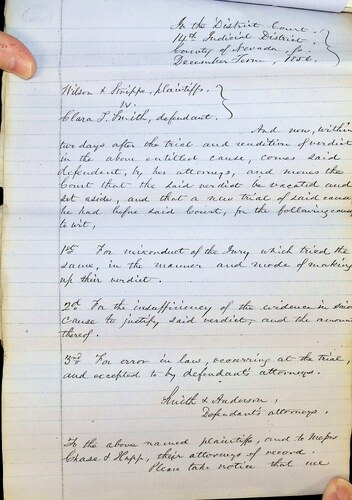 In the District Court.
14th Judicial District.
County of Nevada ss.
December Term, 1856.
Wilson & Knipps, plaintiffs.
vs.
Clara T. Smith, defendant.
And now, within
two days after the trial and rendition of verdict
in the above entitled cause, comes said
defendant, by her attorneys, and moves the
Court that the said verdict be vacated and
set aside, and that a new trial of said cause
be had before said Court, for the following causes
to wit,
1st For misconduct of the Jury which tried the
same, in the manner and mode of making
up their verdict.
2d. For the insufficiency of the evidence in said
cause to justify said verdict, and the amount
thereof.
3rd For error in law, occurring at the trial,
and excepted to by defendant's attorneys.
Smith & Anderson,
Defendant's attorneys.
To the above named plaintiffs, and to Messrs
Chase & Hupp, their attorneys of record.
Please take notice that we